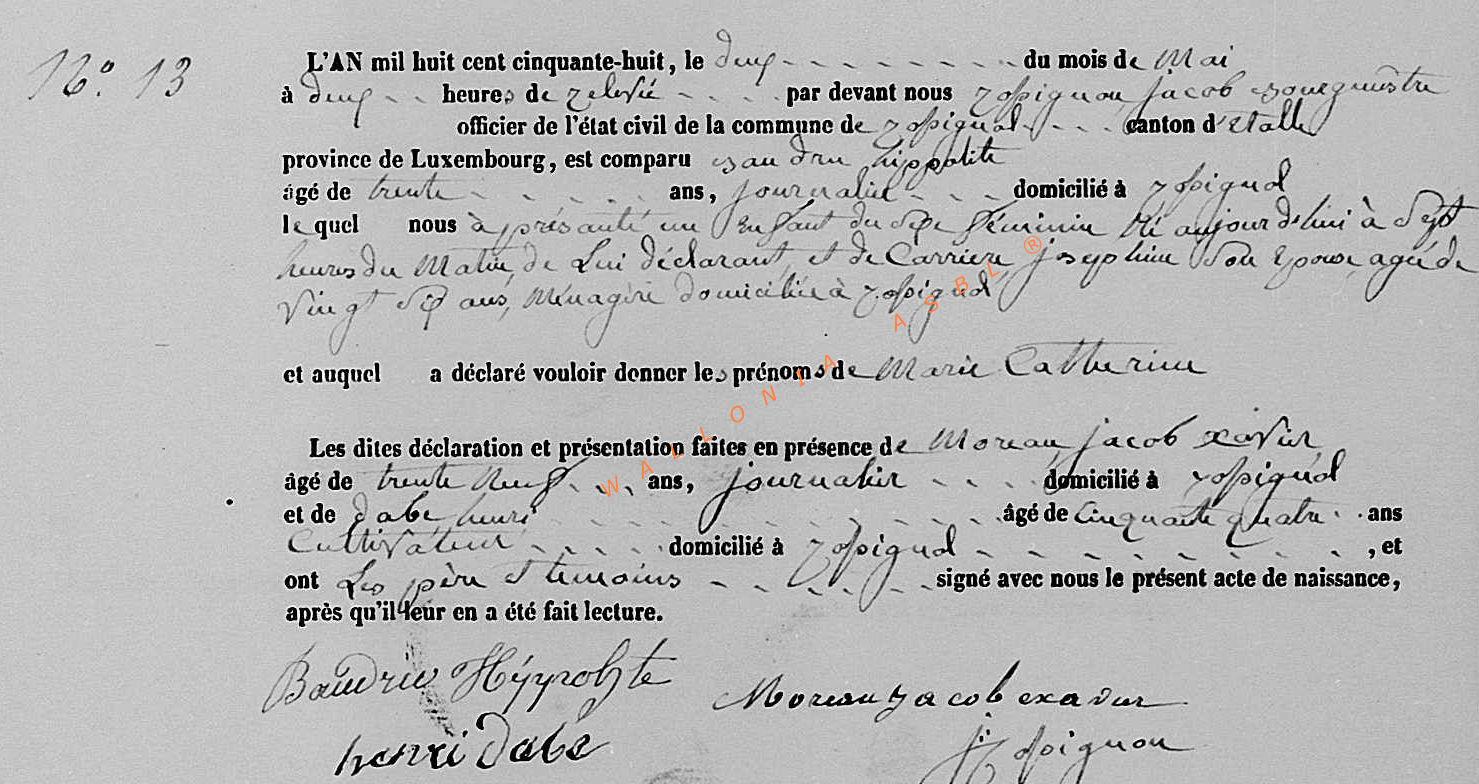 N° 13
L'AN mil huit cent cinquante-huit, le deux du mois de Mai
à deux heures de relevé par devant nous Rossignon jacob Bourgmestre
officier de l'état civil de la commune de Rossignol canton d'Etalle
province de Luxembourg, est comparu Baudru hippolite
âgé de trente ans, journalier domicilié à Rossignol
lequel nous à présanté un Enfant du Sexe féminin Né aujourd'hui à Sept
heures du Matin, de Lui déclarant, et de Carriere josephine Son Epouse, agée de
Vingt Six ans, Ménagère domiciliée à Rossignol
et auquel a déclaré vouloir donner les prénoms de Marie Catherine
Les dites déclaration et présentation faites en présence de Moreau jacob xavier
âgé de trente Neuf ans, journalier domicilié à Rossignol
et de Dabe henri âgé de Cinquante quatre ans
Cultivateur domicilié à Rossignol , et
ont Les père et temoins signé avec nous le présent acte de naissance,
après qu'il leur en a été fait lecture.
Baudric Hÿppolyte
Moreau jacob exavier
henri Dabe
J Rossignon
WALLONIA ASBL ®